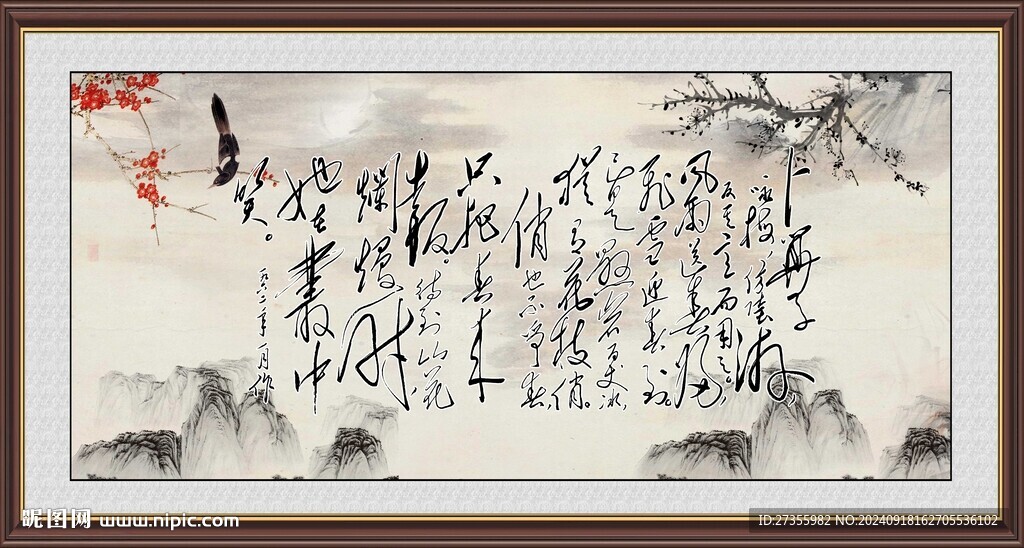 卜算子
咏梅,仿陆游,
反其意而用之。
风雨送春归,
飞雪迎春到。
已是悬岩百丈冰,
犹有花枝俏。
俏也不争春,
只把春来
报。待到山花
烂熳时
她在丛中
笑。
一九六二年一月作
昵图网 www.nipic.com
ID:27355982 NO:20240918162705536102